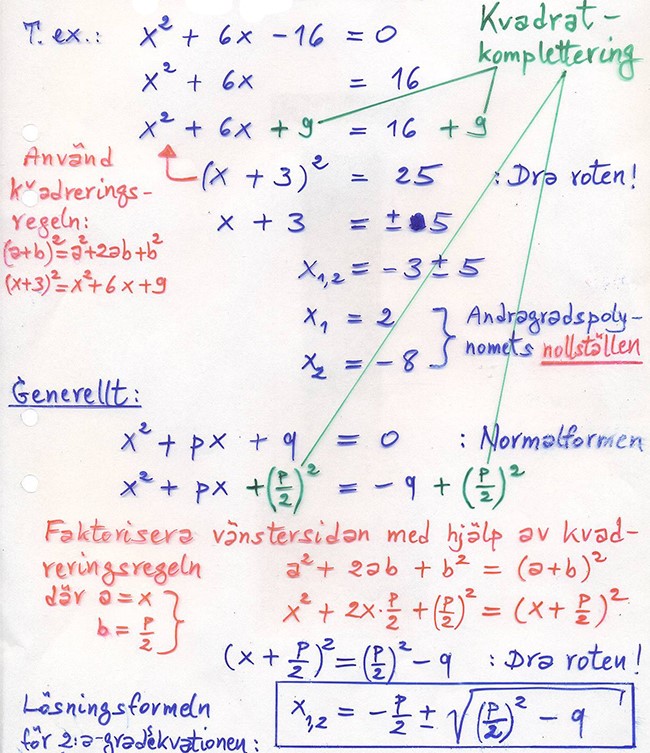 T. ex.: x² + 6x - 16 = 0
Kvadrat-
komplettering
x² + 6x = 16
x² + 6x + 9 = 16 + 9
Använd
kvadrerings-
regeln:
(a+b)² = a²+2ab+b²
(x+3)² = x²+6x+9
(x + 3)² = 25 : Dra roten!
x + 3 = ± 5
x₁,₂ = -3 ± 5
x₁ = 2
x₂ = -8
Andragradspoly-
nomets nollställen
Generellt:
x² + px + q = 0 : Normalformen
x² + px + (p/2)² = -q + (p/2)²
Faktorisera vänstersidan med hjälp av kvad-
reringsregeln a² + 2ab + b² = (a+b)²
där a = x
b = p/2
x² + 2x·p/2 + (p/2)² = (x + p/2)²
(x + p/2)² = (p/2)² - q : Dra roten!
Lösningsformeln
för 2:a-gradsekvationen:
x₁,₂ = -p/2 ± √((p/2)² - q)